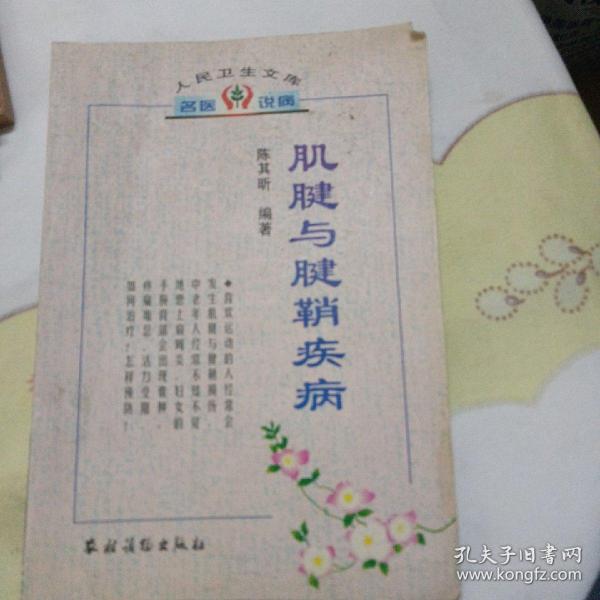 人民卫生文库
名医 说病
肌腱与腱鞘疾病
陈其昕 编著
◆喜欢运动的人经常会
发生肌腱与腱鞘损伤，
中老年人经常不知不觉
地患上肩周炎，妇女的
手腕背部会出现
疼痛难忍、活力受限
如何治疗？怎样预防？
农村读物出版社
孔夫子旧书网
www.kongfz.com